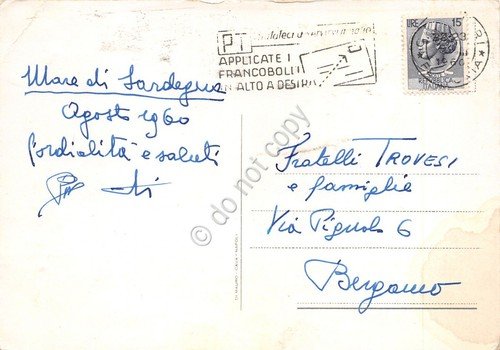 PT
APPLICATE I
FRANCOBOLLI
IN ALTO A DESTRA
LIRE 15
Mare di Sardegna
Agosto 1960
Cordialità e saluti
Fratelli TROVESI
e famiglia
Via Pignolo 6
Bergamo
do not copy